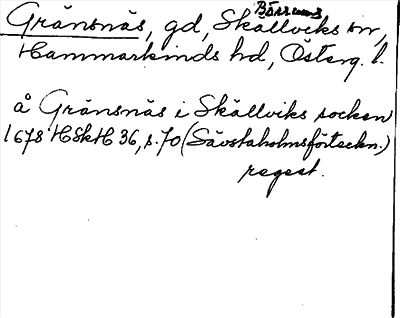 Börrums
Gränsnäs, gd, Skällviks sn,
Hammarkinds hd, Österg. l.
å Gränsnäs i Skällviks socken
1678 HSkH 36, s. 70 (Sävstaholmsförteckn.)
regest.